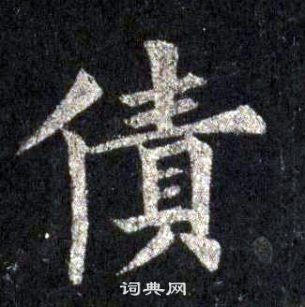 債
词典网